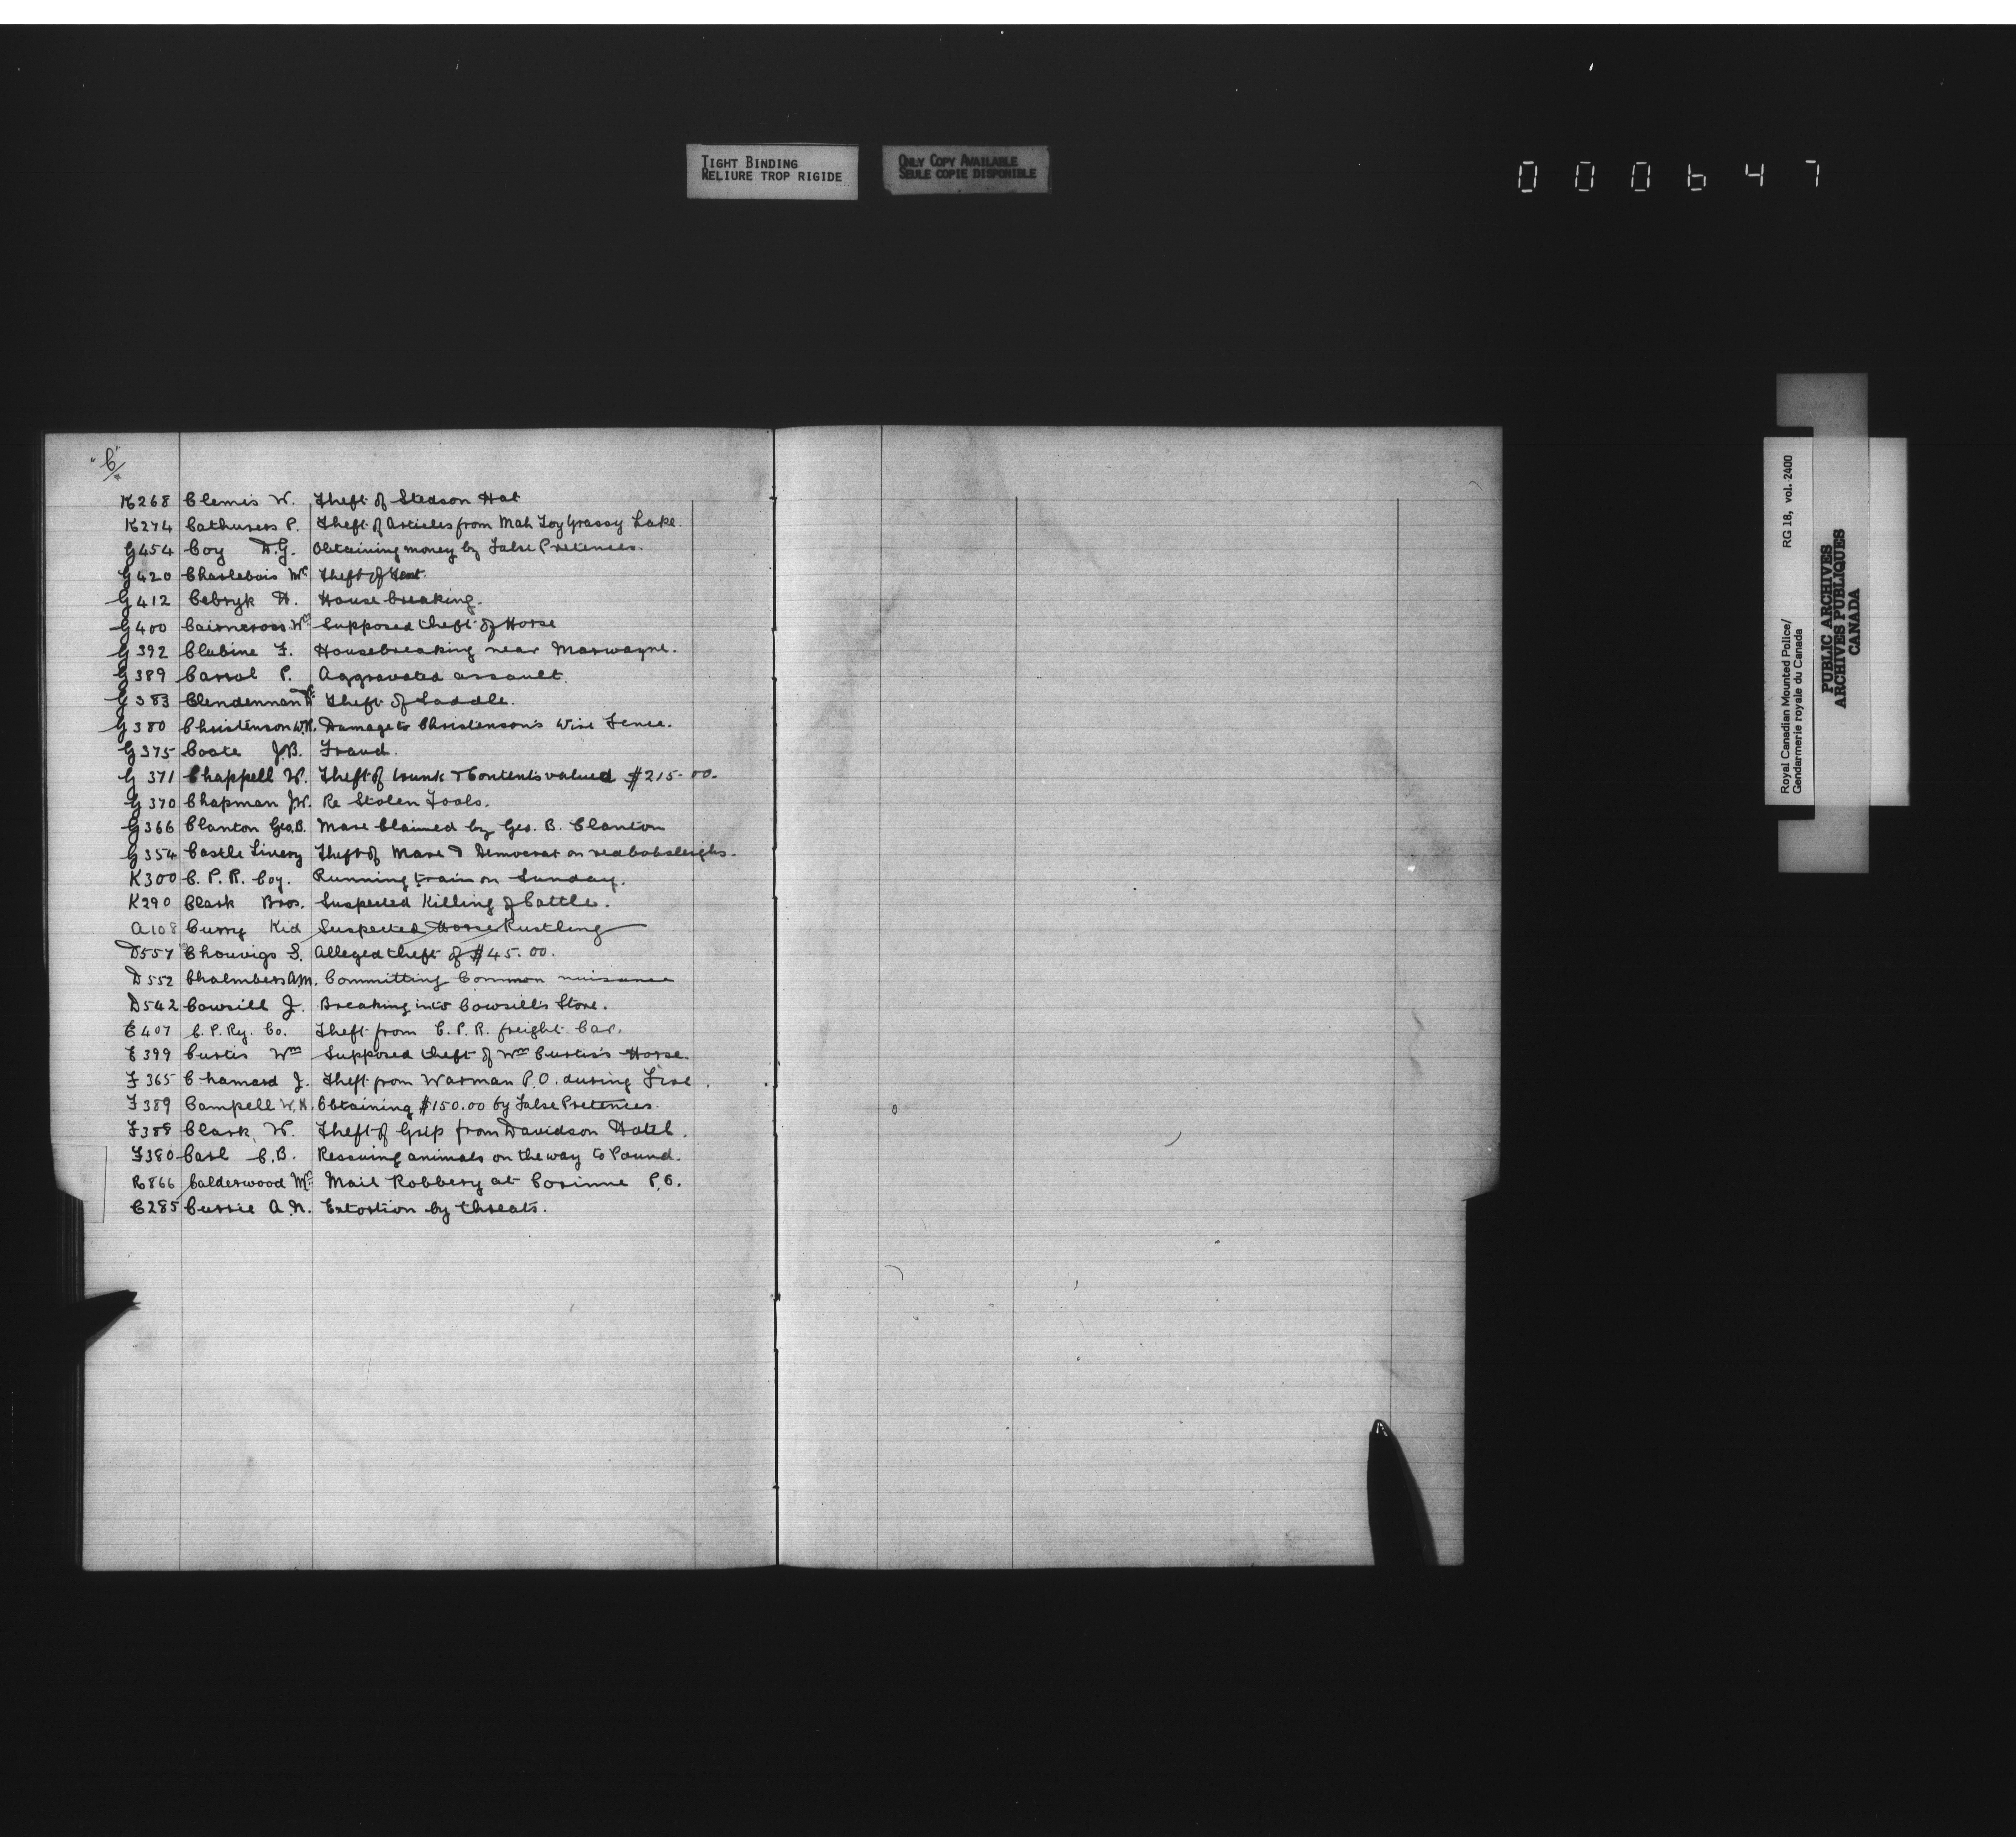 TIGHT BINDING
RELIURE TROP RIGIDE
ONLY COPY AVAILABLE
SEULE COPIE DISPONIBLE
000647
"C"
K268 Clemis W. Theft of Stedson Hat
K274 Cathurers P. Theft of Articles from Mah Toy Grassy Lake.
G454 Coy D.G. Obtaining money by False Pretences.
G420 Charlebois Mr Theft of Tent.
G412 Cebryk H. House breaking.
G400 Cairncross Wm Supposed theft of Horse
G392 Clubine F. Housebreaking near Marwayne.
G389 Carrol P. Aggravated assault.
G383 Clendennan Theft of Saddle.
G380 Christenson W.H. Damage to Christenson's Wire Fence.
G375 Coate J.B. Fraud.
G371 Chappell W. Theft of trunk & Contents valued $215.00.
G370 Chapman J.W. Re Stolen Tools.
G366 Clanton Geo. B. Mare Claimed by Geo. B. Clanton
G354 Castle Livery Theft of Mare & Democrat on red bobsleighs.
K300 C. P. R. Coy. Running train on Sunday.
K290 Clark Bros. Suspected Killing of Cattle.
A108 Curry Kid Suspected Horse Rustling
D557 Chouvigs S. Alleged theft of $45.00.
D552 Chalmbers A.M. Committing Common nuisance
D542 Cowsill J. Breaking into Cowsill's Store.
E407 C. P. Ry. Co. Theft from C. P. R. freight Car.
E399 Curtis Wm Supposed theft of Wm Curtis's Horse.
F365 Chamard J. Theft from Warman P.O. during Fire.
F389 Campell W.H. Obtaining $150.00 by False Pretences.
F388 Clark W. Theft of Grip from Davidson Hotel.
F380 Carl C.B. Rescuing animals on the way to Pound.
R866 Calderwood Mr Mail Robbery at Corinne P.O.
C285 Currie A.N. Extortion by threats.
Royal Canadian Mounted Police/ RG 18, vol. 2400
Gendarmerie royale du Canada
PUBLIC ARCHIVES
ARCHIVES PUBLIQUES
CANADA